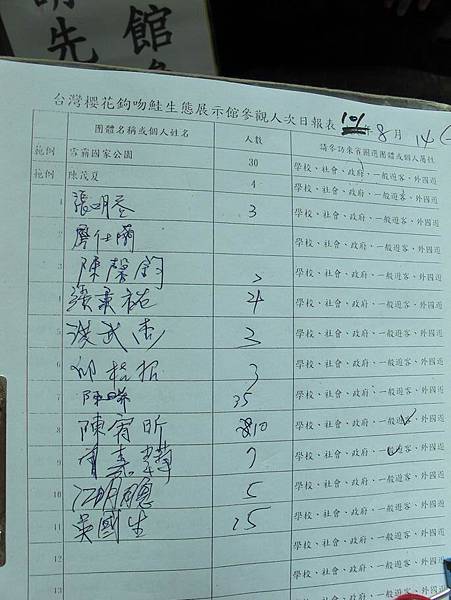 先
館
台灣櫻花鉤吻鮭生態展示館參觀人次日報表 101 8月 14
團體名稱或個人姓名 人數 請參訪來賓圈選團體或個人屬性
範例 雪霸國家公園 30 學校、社會、政府、一般遊客、外國遊
範例 陳茂夏 4 學校、社會、政府、一般遊客、外國遊
1 張明 3 學校、社會、政府、一般遊客、外國遊
2 廖仕 學校、社會、政府、一般遊客、外國遊
3 陳馨鈞 學校、社會、政府、一般遊客、外國遊
4 24 學校、社會、政府、一般遊客、外國遊
5 武 3 學校、社會、政府、一般遊客、外國遊
6 邱 3 學校、社會、政府、一般遊客、外國遊
7 陳 25 學校、社會、政府、一般遊客、外國遊
8 陳宥昕 10 學校、社會、政府、一般遊客、外國遊
9 7 學校、社會、政府、一般遊客、外國遊
10 江明聰 5 學校、社會、政府、一般遊客、外國遊
11 吳國生 25 學校、社會、政府、一般遊客、外國遊
12 學校、社會、政府、一般遊客、外國遊
13 學校、社會、政府